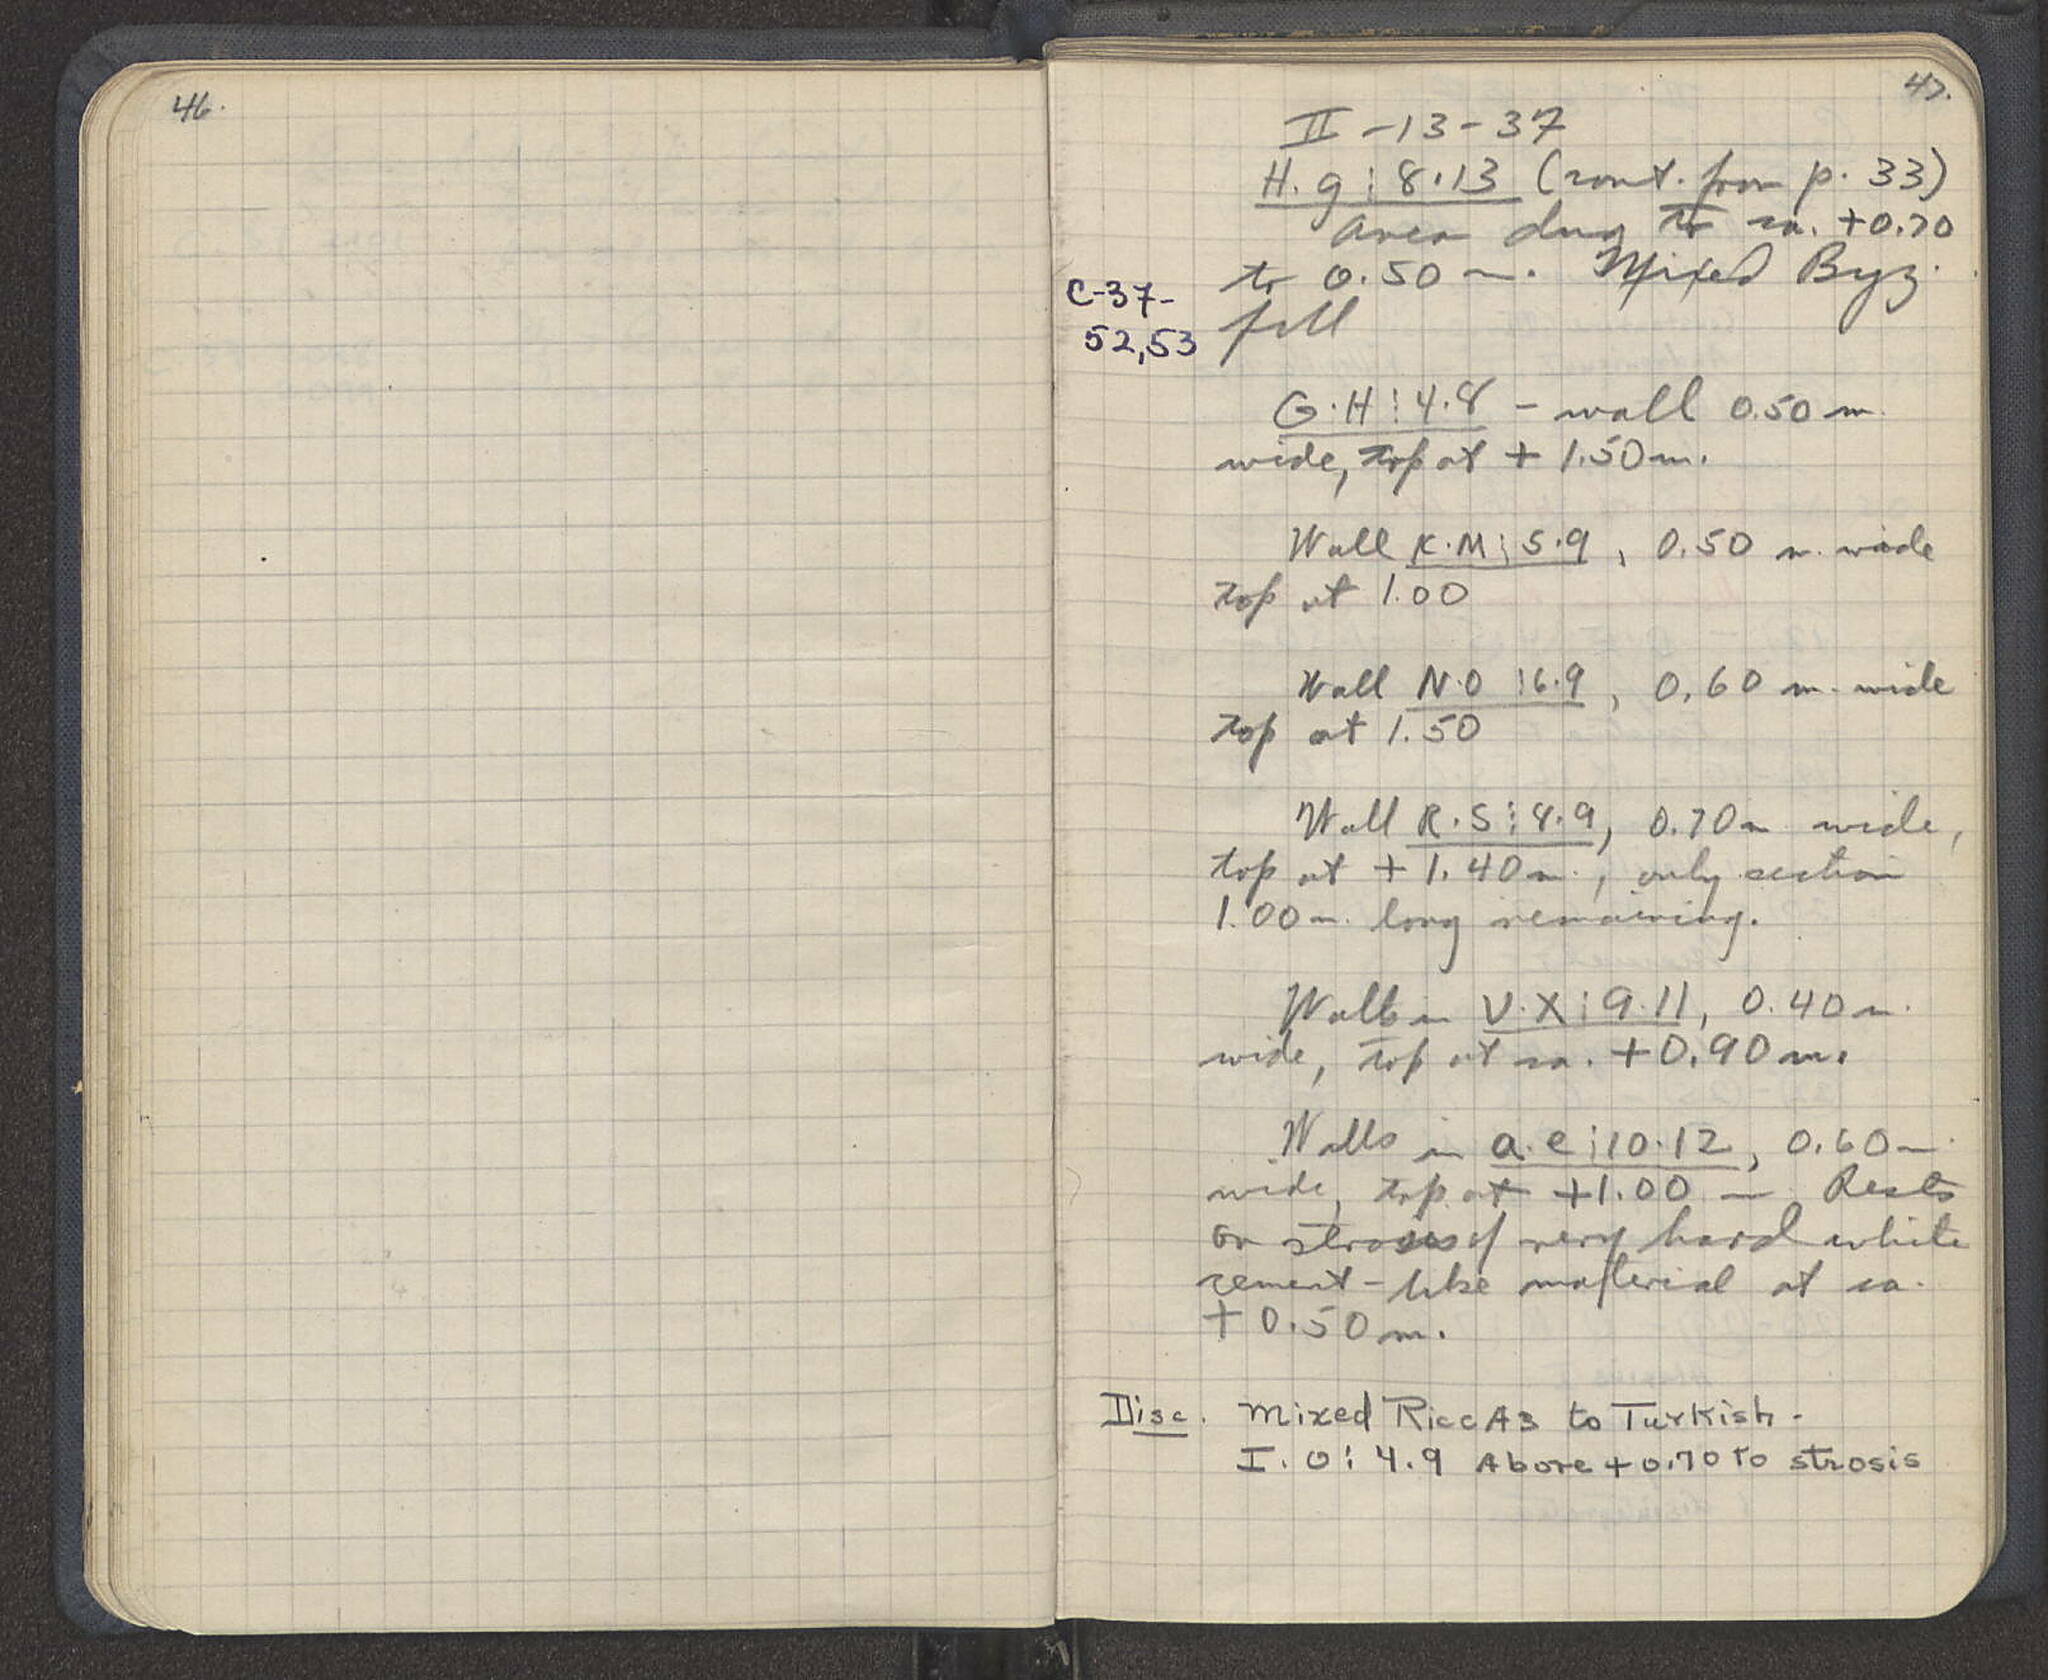 46.
47.
II - 13 - 37
H. g : 8.13 (cont. from p. 33)
area dug to ca. +0.70
to 0.50 m. Mixed Byz.
fill
C-37-
52,53
G.H : 4.8 - wall 0.50 m.
wide, top at + 1.50 m.
Wall K.M : 5.9 , 0.50 m. wide
top at 1.00
Wall N.O : 6.9 , 0.60 m. wide
top at 1.50
Wall R.S : 8.9, 0.70 m wide,
top at + 1.40 m., only section
1.00 m. long remaining.
Walls in V.X : 9.11, 0.40 m.
wide, top at ca. +0.90 m.
Walls in a.e : 10.12, 0.60 m
wide, top at +1.00 m Rests
on strosis of very hard white
cement-like material at ca.
+ 0.50 m.
Disc. Mixed to Turkish -
I. O : 4.9 Above +0.70 to strosis